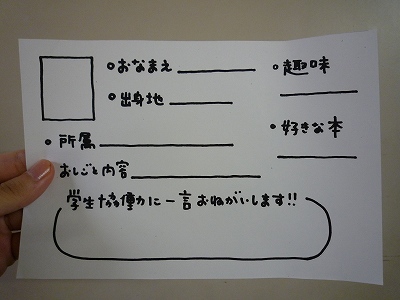 ○おなまえ
○出身地
○所属
おしごと内容
○趣味
○好きな本
学生協働に一言おねがいします!!